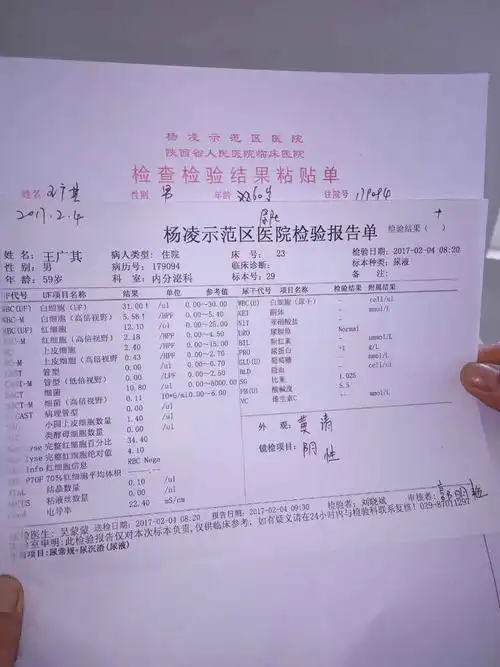 杨凌示范区医院
陕西省人民医院临床医院
检查检验结果粘贴单
姓名 王广其 性别 男 年龄 住院号 179094
2017.2.4
杨凌示范区医院检验报告单 检验结果( )
姓名:王广其 病人类型:住院 床 号: 23 检验日期:2017-02-04 08:20
性别:男 病历号:179094 临床诊断: 标本种类:尿液
年龄:59岁 科 室:内分泌科 标本号:29 备 注:
UF代号 UF项目名称 结果 单位 参考值 尿干代号 项目名称 检验结果 附属结果
WBC(UF) 白细胞(UF) 31.00↑ /ul 0.00~30.00 WBC(U) 白细胞(尿干) - cell/ul
WBC-M 白细胞(高倍视野) 5.58↑ /HPF 0.00~5.40 KET 酮体 - mmol/L
红细胞 12.10 /ul 0.00~25.00 NIT 亚硝酸盐 -
红细胞(高倍视野) 2.18 /HPF 0.00~4.50 URO 尿胆原 Normal
上皮细胞 2.40 /ul 0.00~15.00 BIL 胆红素 - mmol/L
上皮细胞(高倍视野 0.43 /HPF 0.00~2.70 PRO 尿蛋白 +1 g/L
管型 0.00 /ul 0.00~2.25 GLU(U) 葡萄糖 - mmol/L
管型(低倍视野) 0.00 /LPF 0.00~2.50 BLD 潜血 - cell/ul
细菌 10.80 /ul 0.00~8000.00 SG 比重 1.025
细菌(高倍视野) 0.11 0.00 PH(U) 酸碱度 5.5
病理管型 0.00 /ul VC 维生素C - mmol/L
小圆上皮细胞数量 1.40 /ul
类酵母细胞数量 0.00 /ul
完整红细胞百分比 34.40
完整红细胞绝对值 4.10
Info 红细胞信息 RBC Nega
P70F 70%红细胞平均体积
结晶数量 0.10 /ul
粘液丝数量 0.00 /ul
Cond 电导率 22.40 mS/cm
外 观: 黄 清
镜检项目: 阴 性
检验医生: 吴蒙燮 送检日期:2017-02-04 08:20 报告日期:2017-02-04 09:30 检验者:刘晓斌 审核者:
检验室申明:此检验报告仅对本次标本负责,仅供临床参考,如有疑义请在24小时内与检验科联系复核!
申请项目:尿常规+尿沉渣(尿液)